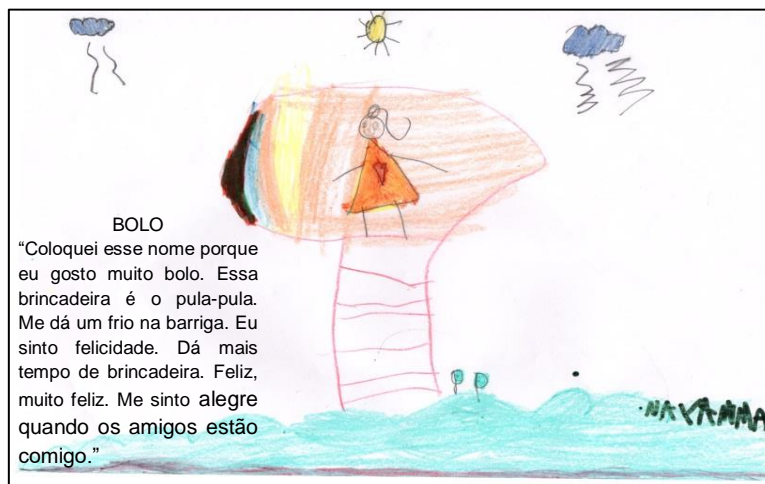 BOLO
“Coloquei esse nome porque
eu gosto muito bolo. Essa
brincadeira é o pula-pula.
Me dá um frio na barriga. Eu
sinto felicidade. Dá mais
tempo de brincadeira. Feliz,
muito feliz. Me sinto alegre
quando os amigos estão
comigo.”